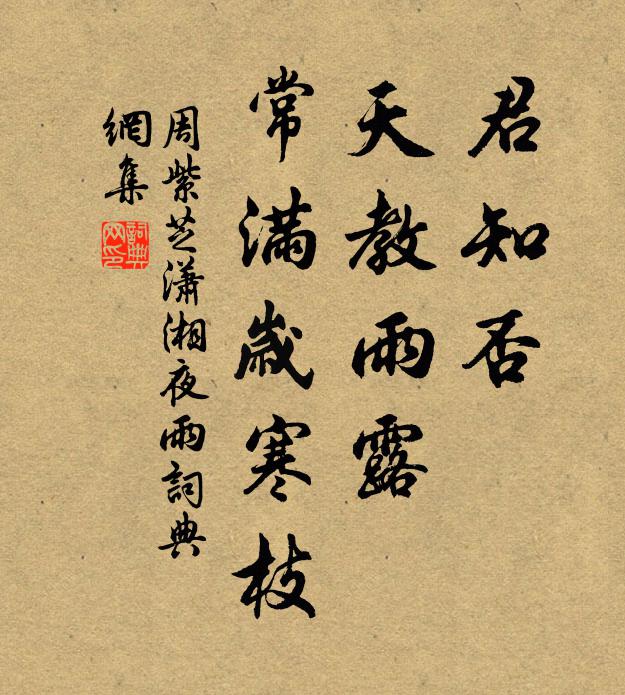 君知否
天教雨露
常滿歲寒枝
周紫芝瀟湘夜雨詞典
網集
詞典
网印